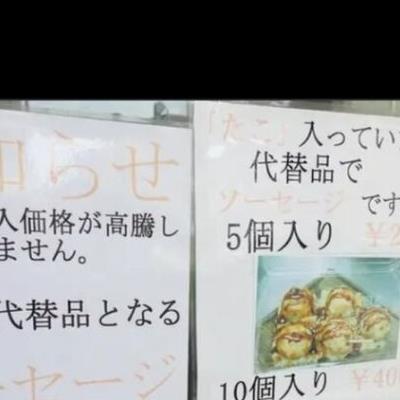 知らせ
入価格が高騰し
ません。
代替品となる
ーセージ
「たこ」入ってい
代替品で
ソーセージです
5個入り ¥2
10個入り ¥400